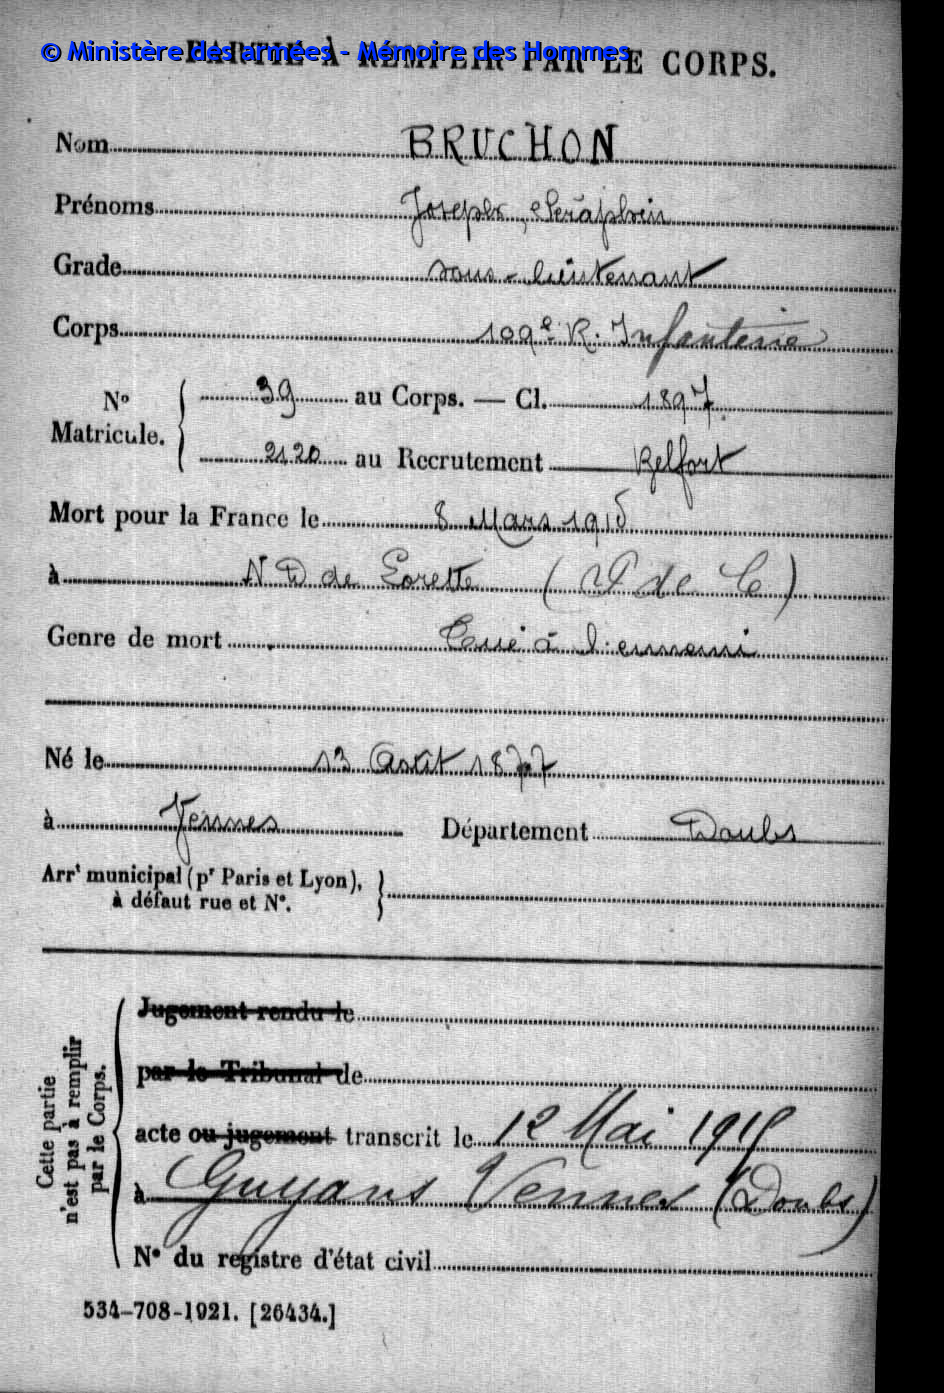 © Ministère des armées - Mémoire des Hommes
PARTIE À REMPLIR PAR LE CORPS.
Nom BRUCHON
Prénoms Joseph, Séraphin
Grade sous-lieutenant
Corps 109e R. Infanterie
No Matricule. { 39 au Corps. — Cl. 1897
2120 au Recrutement Belfort
Mort pour la France le 8 Mars 1915
à N D de Lorette (P de C)
Genre de mort Tué à l'ennemi
Né le 13 Août 1877
à Vennes Département Doubs
Arrt municipal (pr Paris et Lyon), }
à défaut rue et No.
Cette partie n'est pas à remplir par le Corps.
Jugement rendu le
par le Tribunal de
acte ou jugement transcrit le 12 Mai 1915
à Guyans Vennes (Doubs)
No du registre d'état civil
534-708-1921. [26434.]